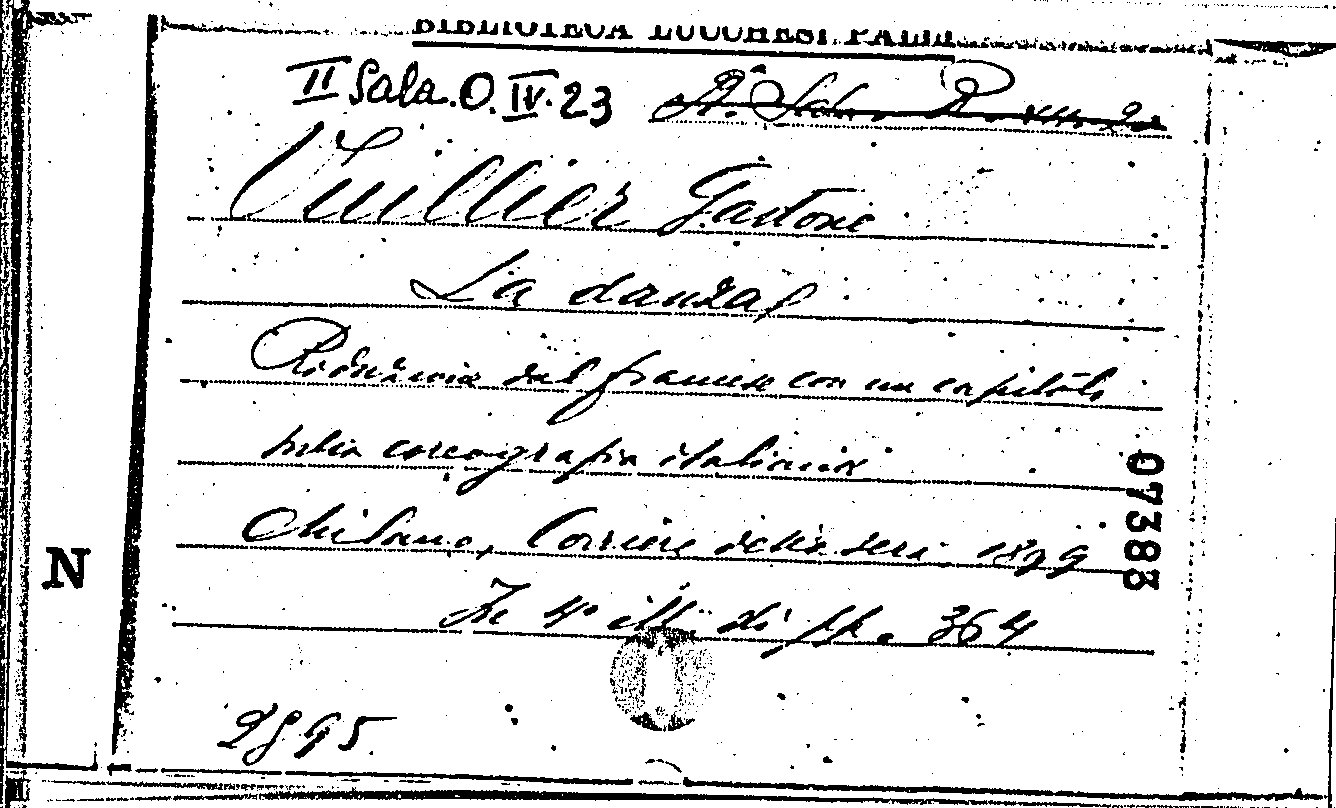 BIBLIOTECA LUCCHESI PALLI
II Sala. O. IV. 23
Vuillier Gastone
La danza
Riduzione dal francese con un capitolo
sulla coreografia italiana
Milano, Corriere della sera 1899
In 4° ill. di pp. 364
07383
N
2895.